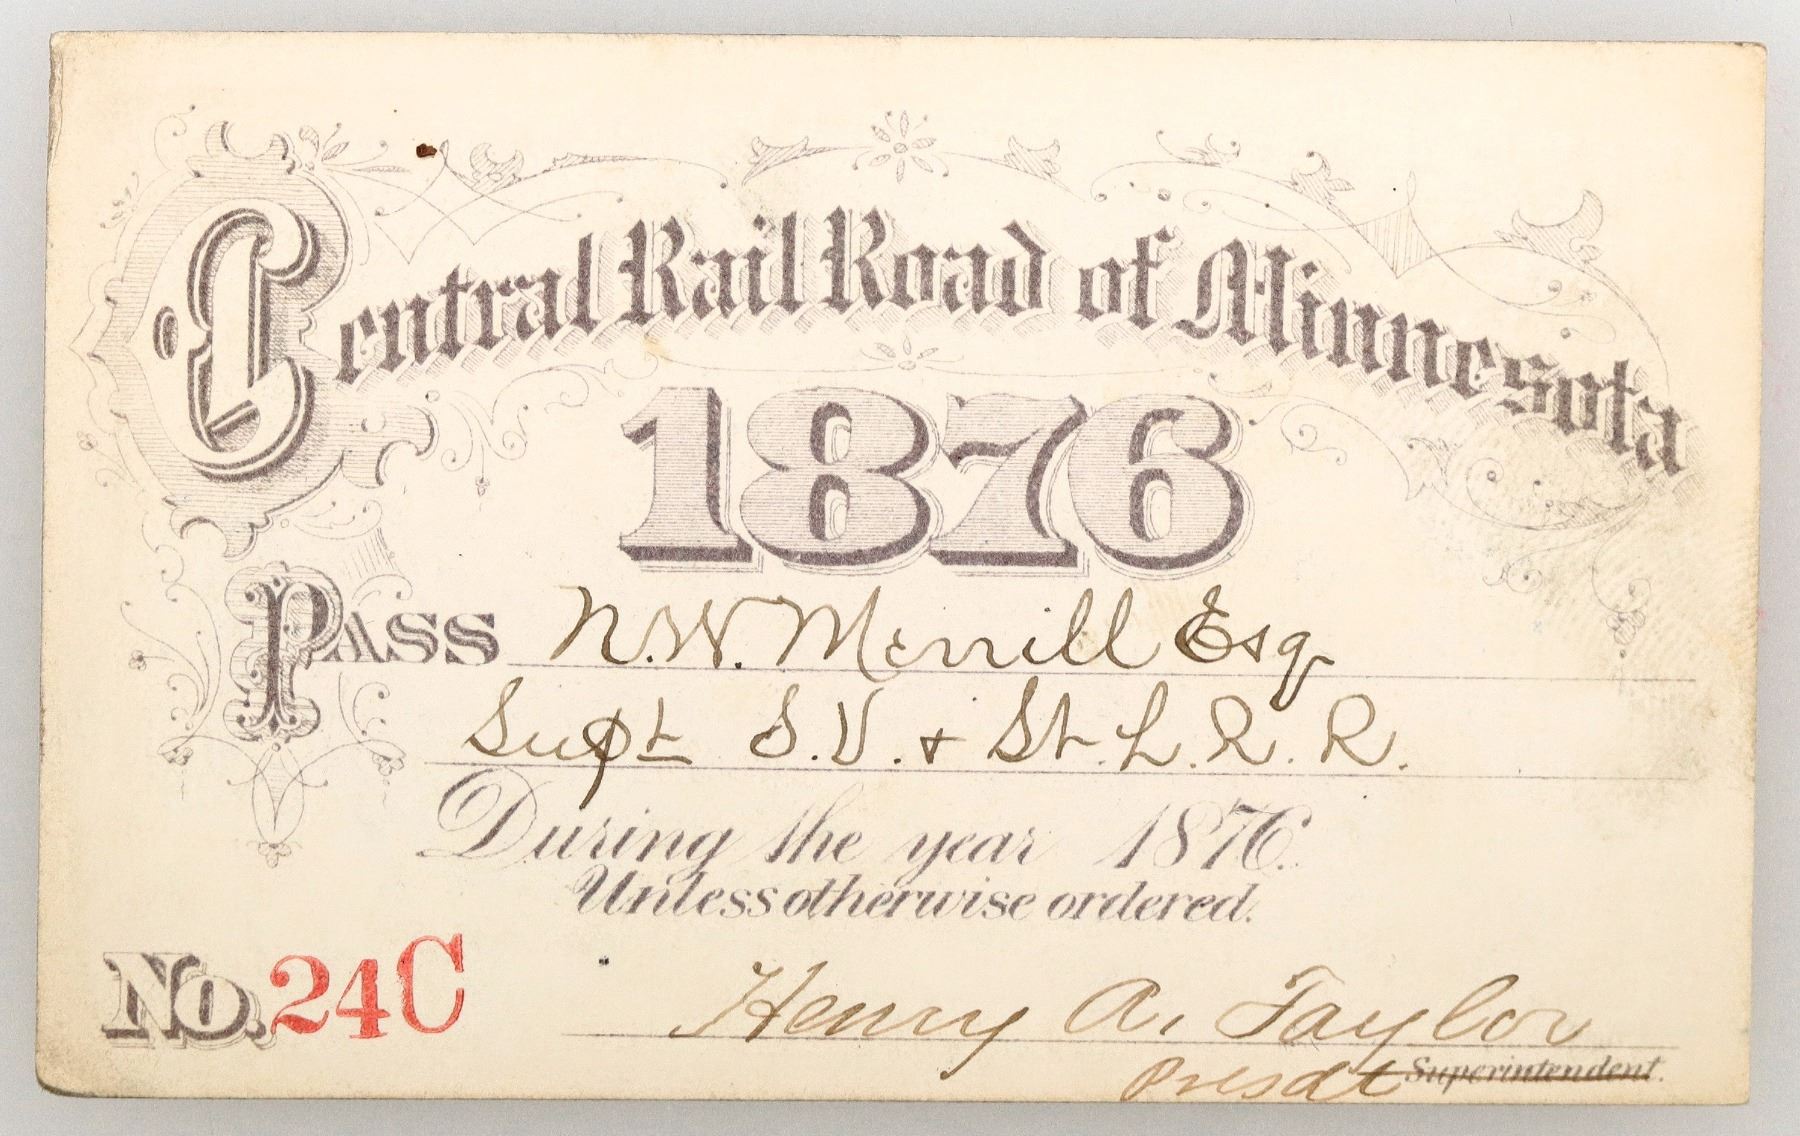 Central Rail Road of Minnesota
1876
Pass N. W. Merrill Esq
Supt S. V. & St. L. R. R.
During the year 1876.
Unless otherwise ordered.
No. 24C
Henry A. Taylor
Presdt Superintendent.